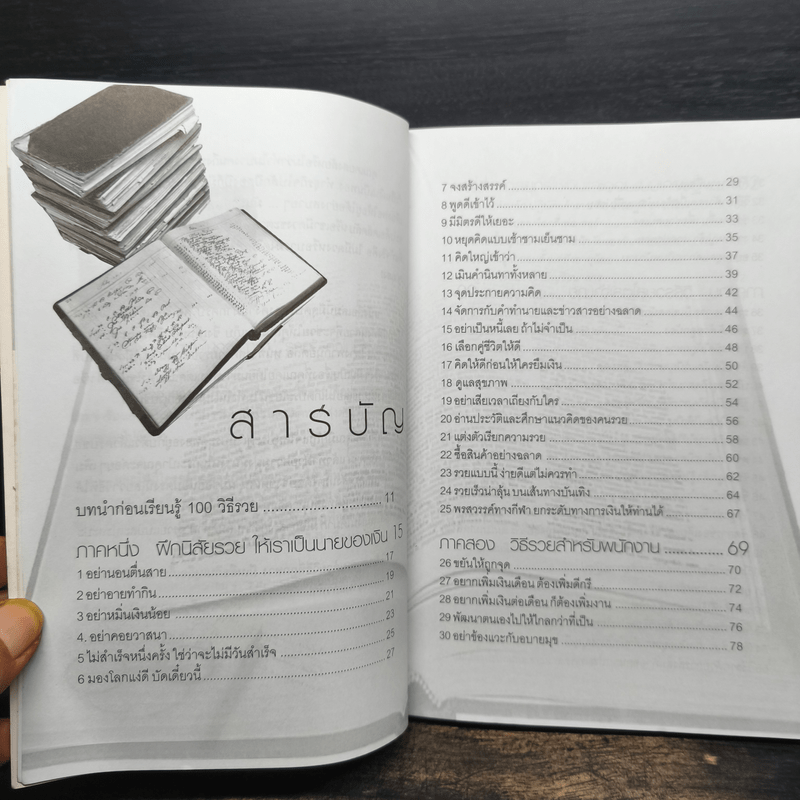 สารบัญ
บทนำก่อนเรียนรู้ 100 วิธีรวย ........................... 11
ภาคหนึ่ง ฝึกนิสัยรวย ให้เราเป็นนายของเงิน 15
1 อย่านอนตื่นสาย ........................... 17
2 อย่าอายทำกิน ........................... 19
3 อย่าหมิ่นเงินน้อย ........................... 21
4. อย่าคอยวาสนา ........................... 23
5 ไม่สำเร็จหนึ่งครั้ง ใช่ว่าจะไม่มีวันสำเร็จ ........................... 25
6 มองโลกแง่ดี บัดเดี๋ยวนี้ ........................... 27
7 จงสร้างสรรค์ ........................... 29
8 พูดดีเข้าไว้ ........................... 31
9 มีมิตรดีให้เยอะ ........................... 33
10 หยุดคิดแบบเช้าชามเย็นชาม ........................... 35
11 คิดใหญ่เข้าว่า ........................... 37
12 เมินคำนินทาทั้งหลาย ........................... 39
13 จุดประกายความคิด ........................... 42
14 จัดการกับคำทำนายและข่าวสารอย่างฉลาด ........................... 44
15 อย่าเป็นหนี้เลย ถ้าไม่จำเป็น ........................... 46
16 เลือกคู่ชีวิตให้ดี ........................... 48
17 คิดให้ดีก่อนให้ใครยืมเงิน ........................... 50
18 ดูแลสุขภาพ ........................... 52
19 อย่าเสียเวลาเถียงกับใคร ........................... 54
20 อ่านประวัติและศึกษาแนวคิดของคนรวย ........................... 56
21 แต่งตัวเรียกความรวย ........................... 58
22 ซื้อสินค้าอย่างฉลาด ........................... 60
23 รวยแบบนี้ ง่ายดีแต่ไม่ควรทำ ........................... 62
24 รวยเร็วน่าลุ้น บนเส้นทางบันเทิง ........................... 64
25 พรสวรรค์ทางกีฬา ยกระดับทางการเงินให้ท่านได้ ........................... 67
ภาคสอง วิธีรวยสำหรับพนักงาน ............... 69
26 ขยันให้ถูกจุด ........................... 70
27 อยากเพิ่มเงินเดือน ต้องเพิ่มดีกรี ........................... 72
28 อยากเพิ่มเงินต่อเดือน ก็ต้องเพิ่มงาน ........................... 74
29 พัฒนาตนเองไปให้ไกลกว่าที่เป็น ........................... 76
30 อย่าข้องแวะกับอบายมุข ........................... 78